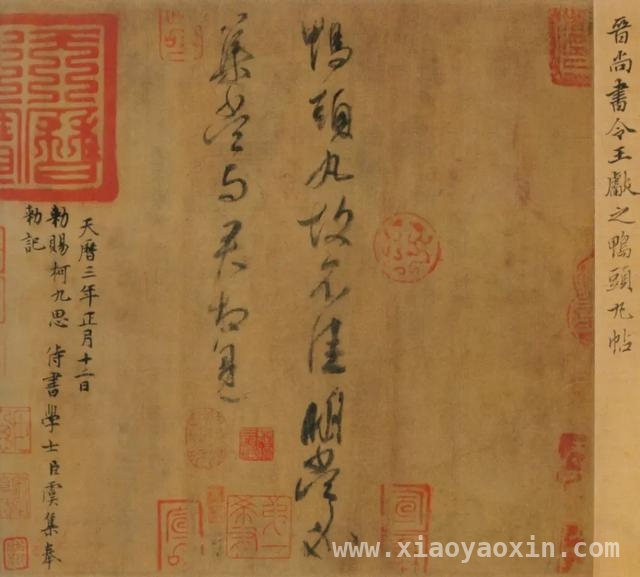 晉尚書令王獻之鴨頭丸帖
鴨頭丸故不佳明當必
集當与君相見
天曆三年正月十二日
勅賜柯九思 侍書學士臣虞集奉
勅記
www.xiaoyaoxin.com